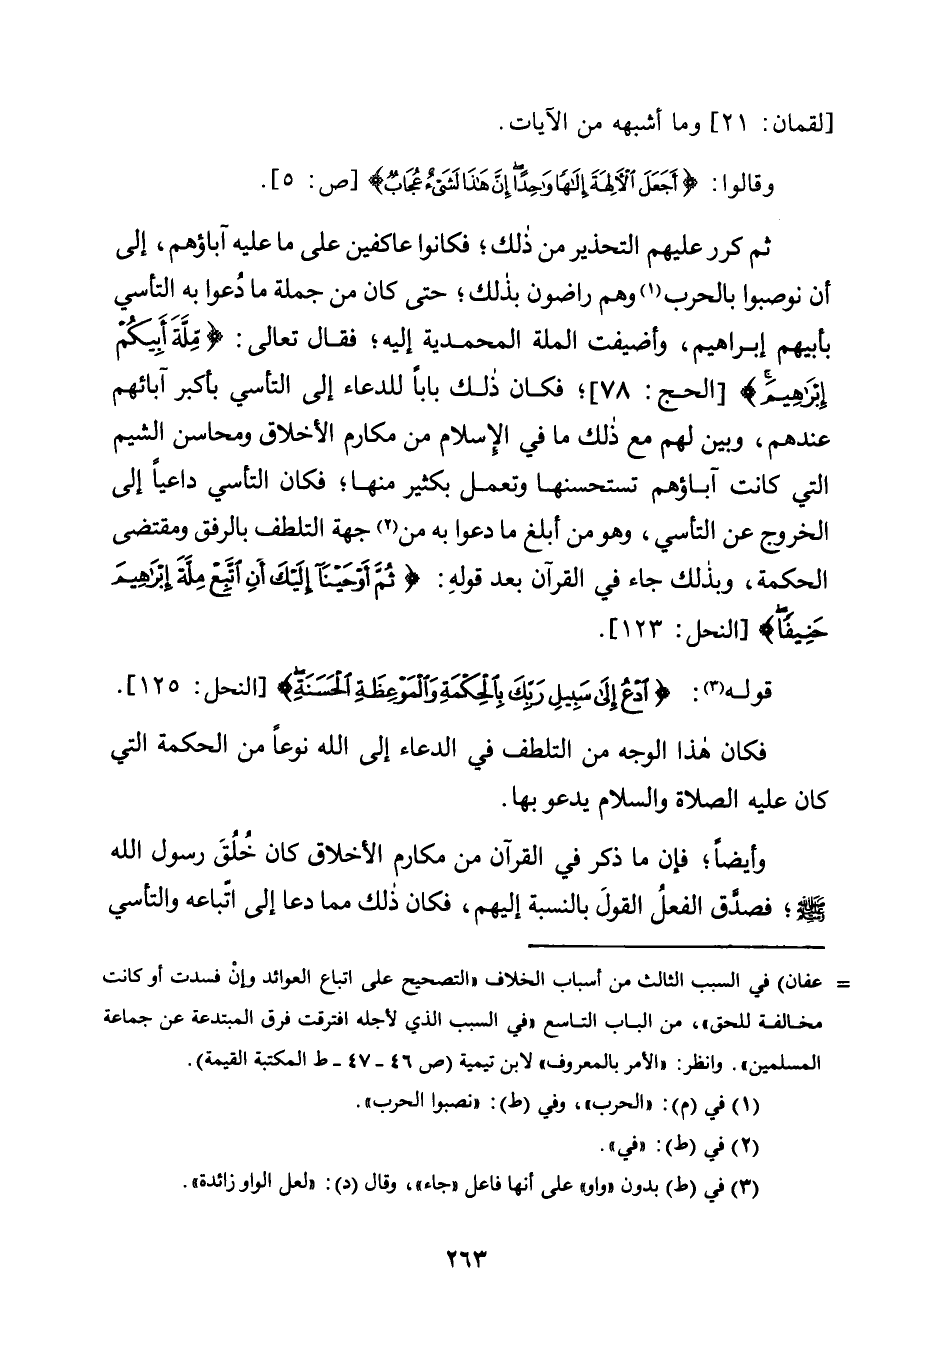 [لقمان: ٢١] وما أشبهه من الآيات.
وقالوا: ﴿أَجَعَلَ ٱلْأَلِهَةَ إِلَٰهًا وَٰحِدًا ۖ إِنَّ هَٰذَا لَشَىْءٌ عُجَابٌ﴾ [ص: ٥].
ثم كرر عليهم التحذير من ذٰلك؛ فكانوا عاكفين على ما عليه آباؤهم، إلى
أن نوصبوا بالحرب(١) وهم راضون بذٰلك؛ حتى كان من جملة ما دُعوا به التأسي
بأبيهم إبراهيم، وأضيفت الملة المحمدية إليه؛ فقال تعالى: ﴿مِّلَّةَ أَبِيكُمْ
إِبْرَٰهِيمَ ۚ﴾ [الحج: ٧٨]؛ فكان ذٰلك باباً للدعاء إلى التأسي بأكبر آبائهم
عندهم، وبين لهم مع ذٰلك ما في الإسلام من مكارم الأخلاق ومحاسن الشيم
التي كانت آباؤهم تستحسنها وتعمل بكثير منها؛ فكان التأسي داعياً إلى
الخروج عن التأسي، وهو من أبلغ ما دعوا به من(٢) جهة التلطف بالرفق ومقتضى
الحكمة، وبذٰلك جاء في القرآن بعد قولهِ: ﴿ثُمَّ أَوْحَيْنَآ إِلَيْكَ أَنِ ٱتَّبِعْ مِلَّةَ إِبْرَٰهِيمَ
حَنِيفًا ۖ﴾ [النحل: ١٢٣].
قولـه(٣): ﴿ٱدْعُ إِلَىٰ سَبِيلِ رَبِّكَ بِٱلْحِكْمَةِ وَٱلْمَوْعِظَةِ ٱلْحَسَنَةِ ۖ﴾ [النحل: ١٢٥].
فكان هٰذا الوجه من التلطف في الدعاء إلى الله نوعاً من الحكمة التي
كان عليه الصلاة والسلام يدعو بها.
وأيضاً؛ فإن ما ذكر في القرآن من مكارم الأخلاق كان خُلُقَ رسول الله
ﷺ؛ فصدَّق الفعلُ القولَ بالنسبة إليهم، فكان ذٰلك مما دعا إلى اتِّباعه والتأسي
= عفان) في السبب الثالث من أسباب الخلاف «التصحيح على اتباع العوائد وإنْ فسدت أو كانت
مخالفة للحق»، من الباب التاسع «في السبب الذي لأجله افترقت فرق المبتدعة عن جماعة
المسلمين». وانظر: «الأمر بالمعروف» لابن تيمية (ص ٤٦ - ٤٧ - ط المكتبة القيمة).
(١) في (م): «الحرب»، وفي (ط): «نصبوا الحرب».
(٢) في (ط): «في».
(٣) في (ط) بدون «واو» على أنها فاعل «جاء»، وقال (د): «لعل الواو زائدة».
٢٦٣